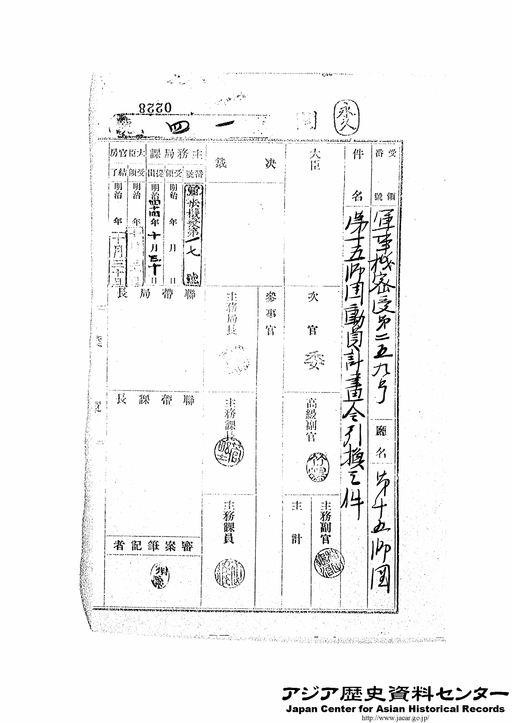 0228
永久
一四
受領番號
軍事機密受第二五九号
廳名
第十五師団
件名
第十五師団動員計畫令引換之件
大臣
次官
委
高級副官
主務副官
主計
決裁
參事官
主務局長
主務課長
主務課員
主務局課
番號
第一七號
受領
明治 年 月 日
提出
明治四十四年十月三十日
聯帶局長
聯帶課長
審案筆記者
大臣官房
受領
明治 年
結了
明治 年
十月三十日
アジア歴史資料センター
Japan Center for Asian Historical Records
http://www.jacar.go.jp/